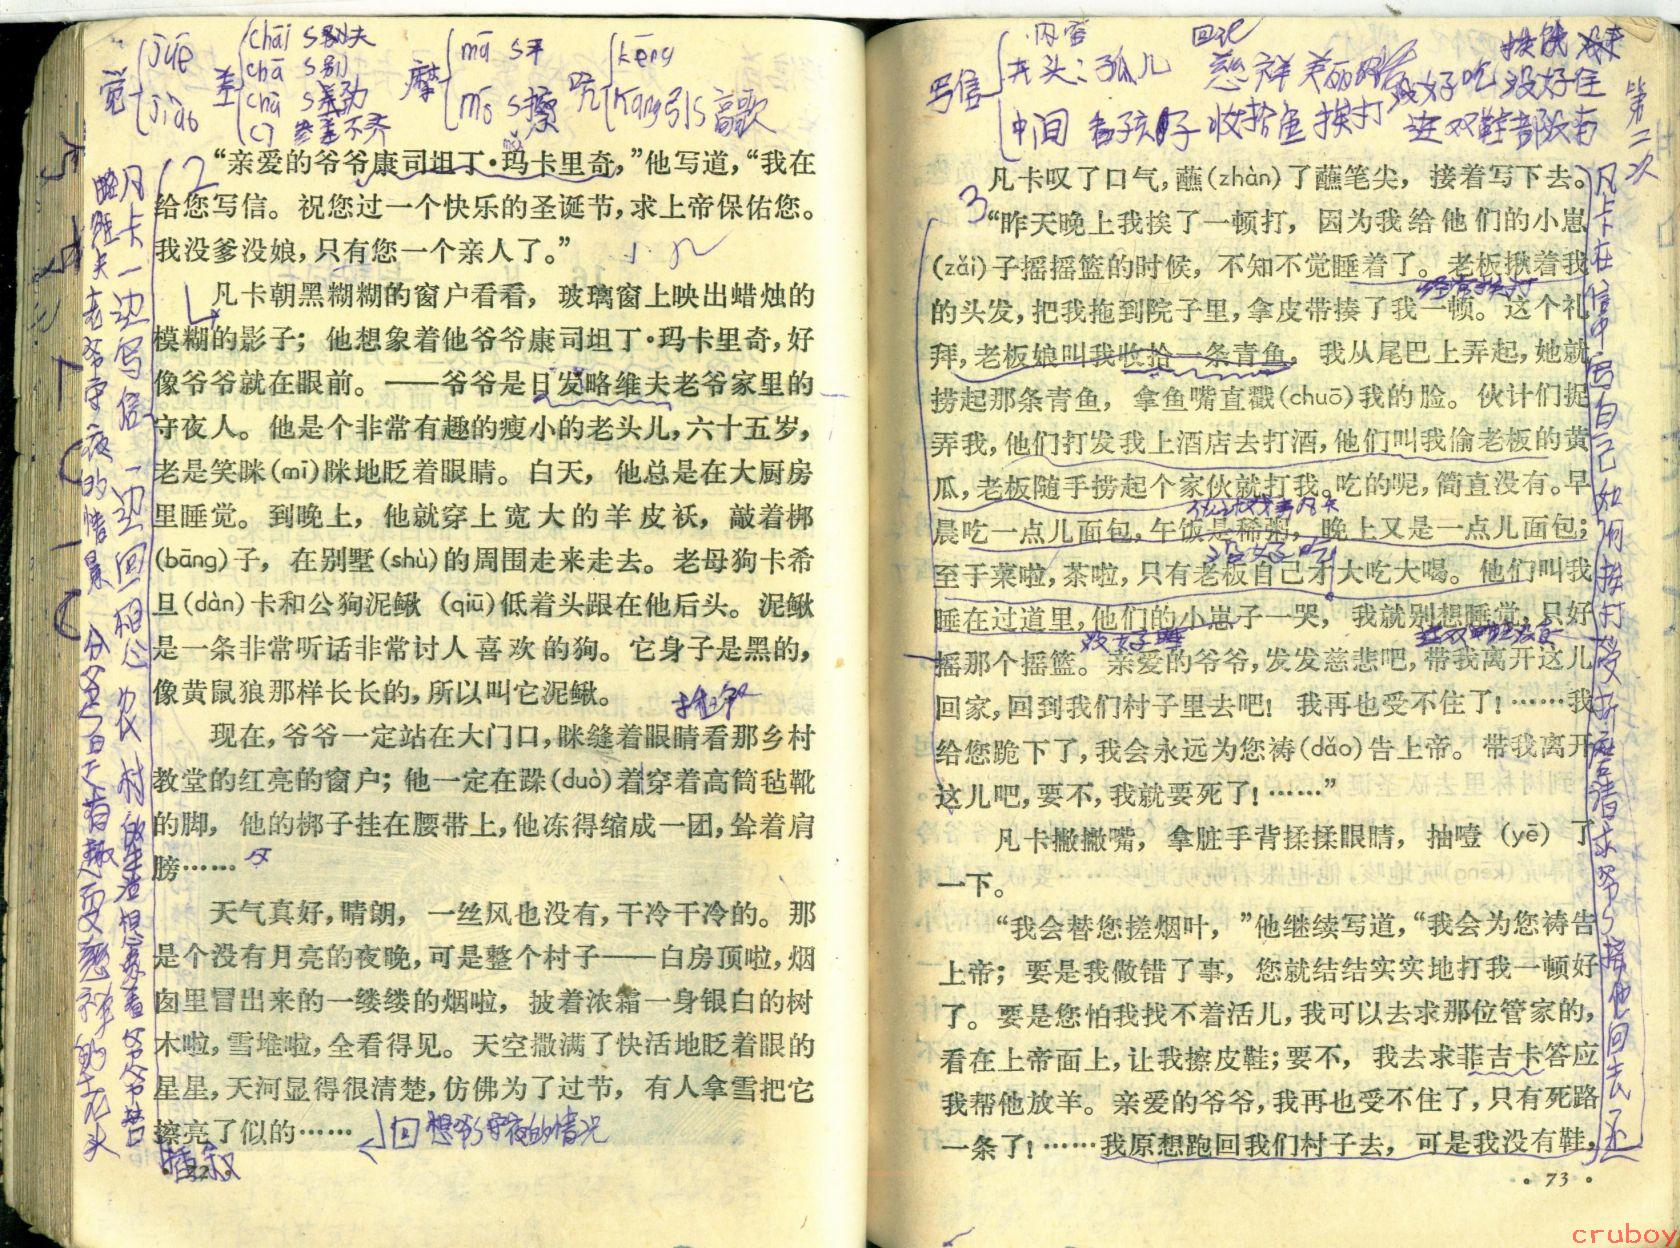 觉 jué jiào
差 chāi chā chà cī
摩 mā mó
吭 kēng háng
“亲爱的爷爷康司坦丁·玛卡里奇，”他写道，“我在
给您写信。祝您过一个快乐的圣诞节，求上帝保佑您。
我没爹没娘，只有您一个亲人了。”
凡卡朝黑糊糊的窗户看看，玻璃窗上映出蜡烛的
模糊的影子；他想象着他爷爷康司坦丁·玛卡里奇，好
像爷爷就在眼前。——爷爷是日发略维夫老爷家里的
守夜人。他是个非常有趣的瘦小的老头儿，六十五岁，
老是笑眯(mī)眯地眨着眼睛。白天，他总是在大厨房
里睡觉。到晚上，他就穿上宽大的羊皮袄，敲着梆
(bāng)子，在别墅(shù)的周围走来走去。老母狗卡希
旦(dàn)卡和公狗泥鳅 (qiū)低着头跟在他后头。泥鳅
是一条非常听话非常讨人喜欢的狗。它身子是黑的，
像黄鼠狼那样长长的，所以叫它泥鳅。
插叙
现在，爷爷一定站在大门口，眯缝着眼睛看那乡村
教堂的红亮的窗户；他一定在跺(duò)着穿着高筒毡靴
的脚，他的梆子挂在腰带上，他冻得缩成一团，耸着肩
膀……
天气真好，晴朗，一丝风也没有，干冷干冷的。那
是个没有月亮的夜晚，可是整个村子——白房顶啦，烟
囱里冒出来的一缕缕的烟啦，披着浓霜一身银白的树
木啦，雪堆啦，全看得见。天空撒满了快活地眨着眼的
星星，天河显得很清楚，仿佛为了过节，有人拿雪把它
擦亮了似的……
回想爷爷守夜的情况
插叙
第二次
写信
内容
开头：孤儿
中间
收拾鱼 挨打
凡卡叹了口气，蘸(zhàn)了蘸笔尖，接着写下去。
3
“昨天晚上我挨了一顿打，因为我给他们的小崽
(zǎi)子摇摇篮的时候，不知不觉睡着了。老板揪着我
的头发，把我拖到院子里，拿皮带揍了我一顿。这个礼
拜，老板娘叫我收拾一条青鱼，我从尾巴上弄起，她就
捞起那条青鱼，拿鱼嘴直戳(chuō)我的脸。伙计们捉
弄我，他们打发我上酒店去打酒，他们叫我偷老板的黄
瓜，老板随手捞起个家伙就打我。吃的呢，简直没有。早
晨吃一点儿面包，午饭是稀粥，晚上又是一点儿面包；
至于菜啦，茶啦，只有老板自己才大吃大喝。他们叫我
睡在过道里，他们的小崽子一哭，我就别想睡觉，只好
摇那个摇篮。亲爱的爷爷，发发慈悲吧，带我离开这儿
回家，回到我们村子里去吧！我再也受不住了！……我
给您跪下了，我会永远为您祷(dǎo)告上帝。带我离开
这儿吧，要不，我就要死了！……”
凡卡撇撇嘴，拿脏手背揉揉眼睛，抽噎 (yē) 了
一下。
“我会替您搓烟叶，”他继续写道，“我会为您祷告
上帝；要是我做错了事，您就结结实实地打我一顿好
了。要是您怕我找不着活儿，我可以去求那位管家的，
看在上帝面上，让我擦皮鞋；要不，我去求菲吉卡答应
我帮他放羊。亲爱的爷爷，我再也受不住了，只有死路
一条了！……我原想跑回我们村子去，可是我没有鞋，
• 73 •
cruboy